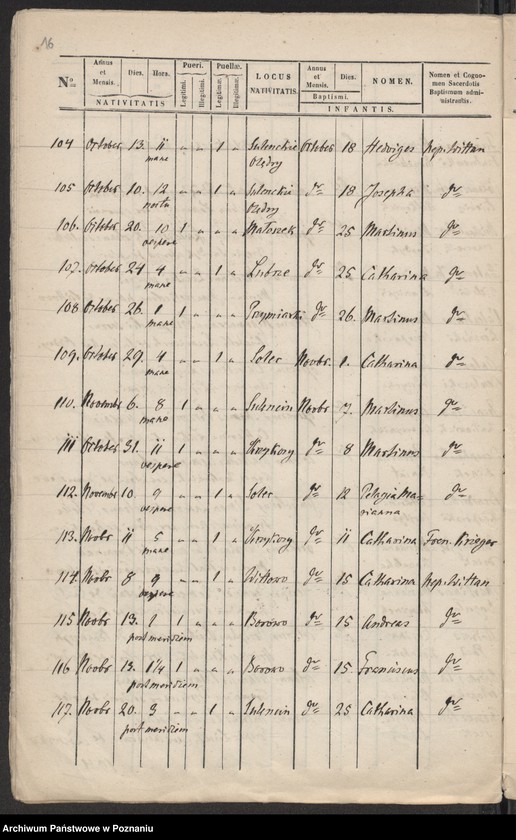 16
No. Annus et Mensis. Dies. Hora. Pueri. Puellæ. LOCUS NATIVITATIS. Annus et Mensis. Dies. NOMEN. Nomen et Cognomen Sacerdotis Baptismum administrantis.
NATIVITATIS Legitimi. Illegitimi. Legitimæ. Illegitimæ. Baptismi. INFANTIS.
104 October 13. 11 mane " " 1 " October 18 Hedwiges Nep. Wittan
105 October 10. 12 " " 1 " do 18 Josepha do
106. October 20. 10 vespere 1 " " " do 25 Martinus do
107. October 24 4 mane " " 1 " Lubrze do 25 Catharina do
108 October 26. 1 mane 1 " " " do 26. Martinus do
109. October 29. 4 mane " " 1 " Solec Novbr. 1. Catharina do
110. Novembr 6. 8 mane 1 " " " Sulencin Novbr 7. Martinus do
111 October 31. 11 vespere 1 " " " do 8 Martinus do
112. Novembr 10. 9 vespere " " 1 " Solec do 12 Pelagia Marianna do
113. Novbr 11 5 mane " " 1 " do 11 Catharina Fran. Krieger
114. Novbr 8 9 vespere " " 1 " Witowo do 15 Catharina Nep. Wittan
115 Novbr 13. 2 post meridiem 1 " " " Borowo do 15 Andreas do
116 Novbr 13. post meridiem 1 " " " Borowo do 15. Franciscus do
117. Novbr 20. 3 post meridiem " " 1 " Sulencin do 25 Catharina do
Archiwum Państwowe w Poznaniu szukajwarchiwach.pl